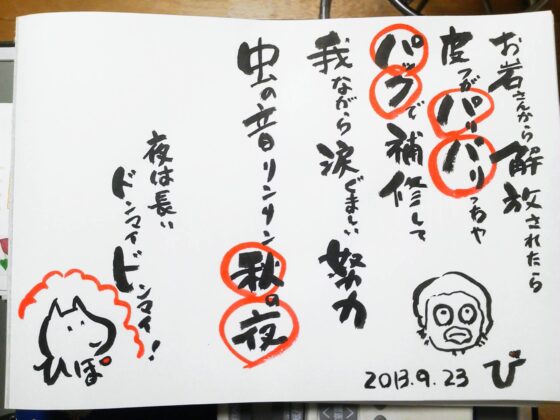 お岩さんから解放されたら
皮ふがパリパリっちゃ
パックで補修して
我ながら涙ぐましい努力
虫の音リンリン秋の夜
夜は長い
ドンマイドンマイ!
ぴ
2013.9.23
ひぽ